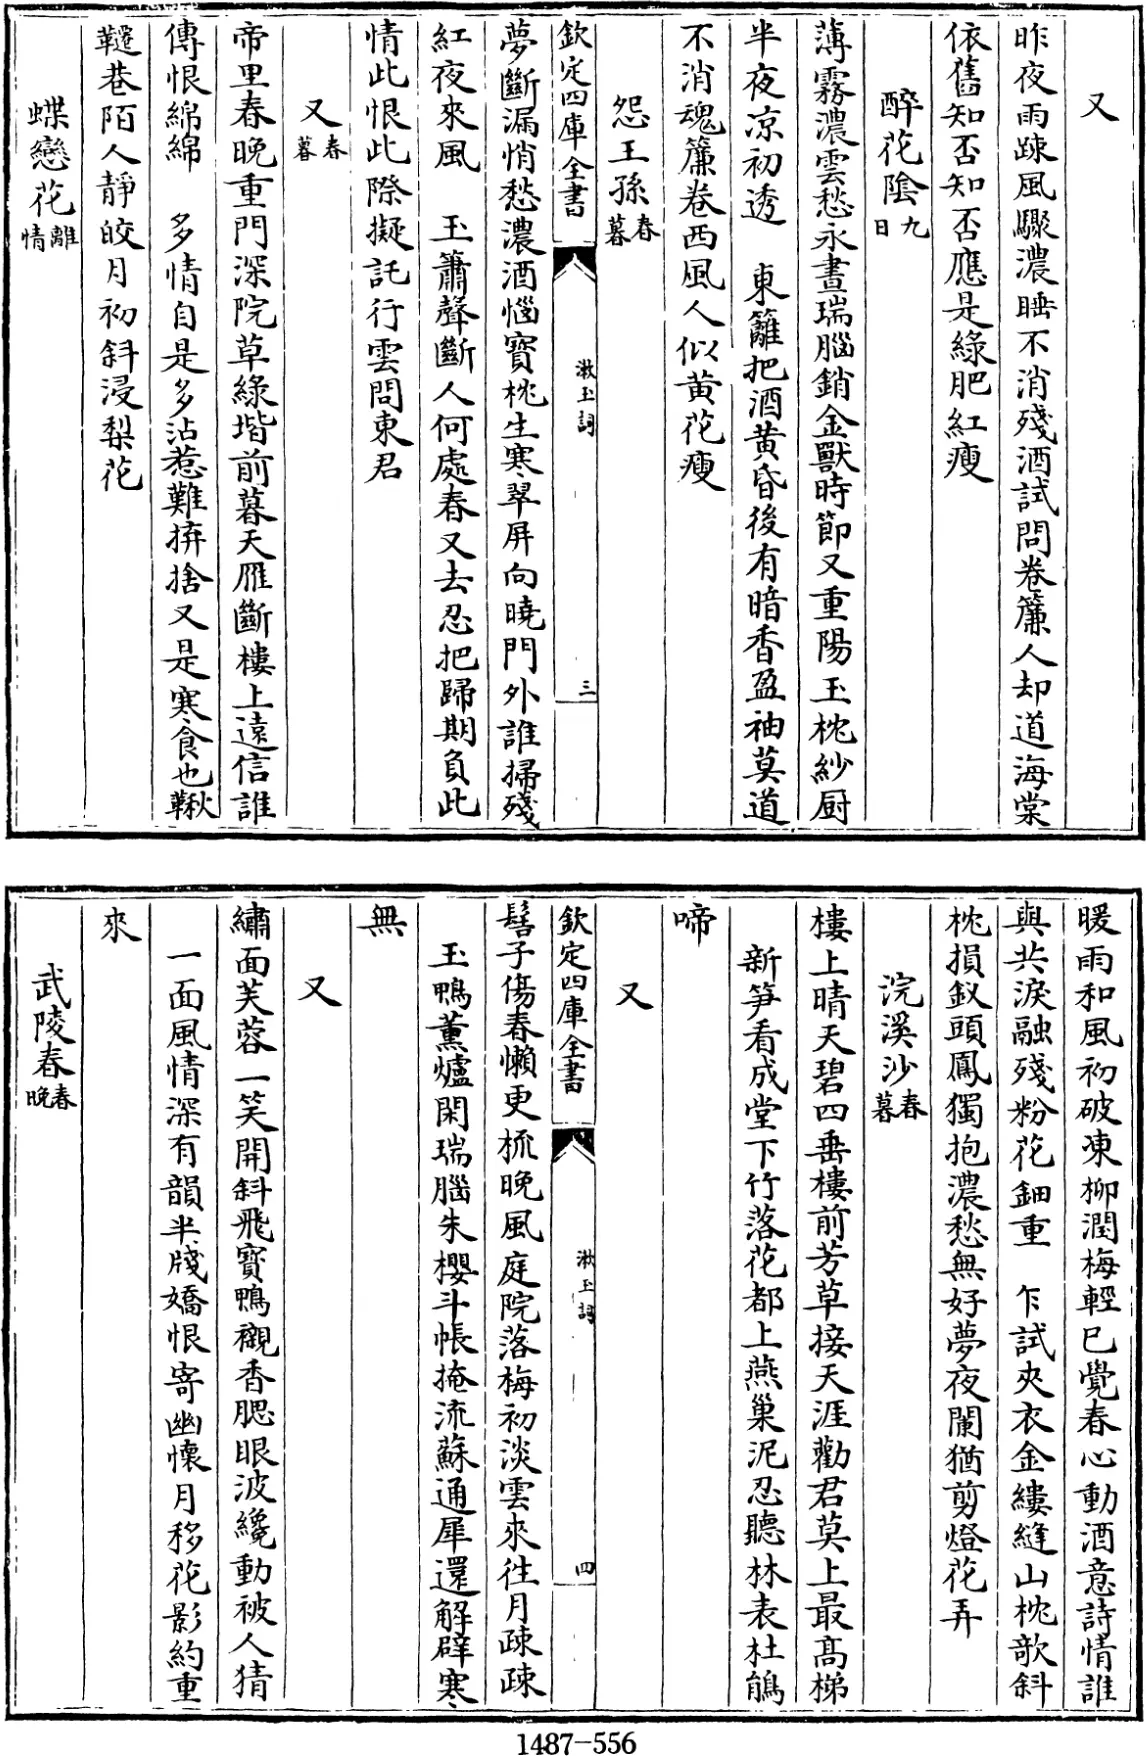 又
昨夜雨疎風驟濃睡不消殘酒試問卷簾人却道海棠
依舊知否知否應是綠肥紅瘦
醉花陰九日
薄霧濃雲愁永晝瑞腦銷金獸時節又重陽玉枕紗厨
半夜凉初透　東籬把酒黄昏後有暗香盈袖莫道
不消魂簾卷西風人似黄花瘦
怨王孫春暮
欽定四庫全書
漱玉詞
三
夢斷漏悄愁濃酒惱寳枕生寒翠屏向曉門外誰掃殘
紅夜來風　玉簫聲斷人何處春又去忍把歸期負此
情此恨此際擬託行雲問東君
又春暮
帝里春晩重門深院草綠堦前暮天雁斷樓上遠信誰
傳恨綿綿　多情自是多沾惹難拚捨又是寒食也鞦
韆巷陌人靜皎月初斜浸梨花
蝶戀花離情
暖雨和風初破凍柳潤梅輕已覺春心動酒意詩情誰
與共淚融殘粉花鈿重　乍試夾衣金縷縫山枕欹斜
枕損釵頭鳳獨抱濃愁無好夢夜闌猶剪燈花弄
浣溪沙春暮
樓上晴天碧四垂樓前芳草接天涯勸君莫上最高梯
新笋看成堂下竹落花都上燕巢泥忍聽林表杜鵑
啼
又
欽定四庫全書
漱玉詞
四
髻子傷春懶更梳晩風庭院落梅初淡雲來往月疎疎
玉鴨薰爐閑瑞腦朱櫻斗帳掩流蘇通犀還解辟寒
無
又
繡面芙蓉一笑開斜飛寳鴨襯香腮眼波纔動被人猜
一面風情深有韻半牋嬌恨寄幽懷月移花影約重
來
武陵春春晩
1487-556